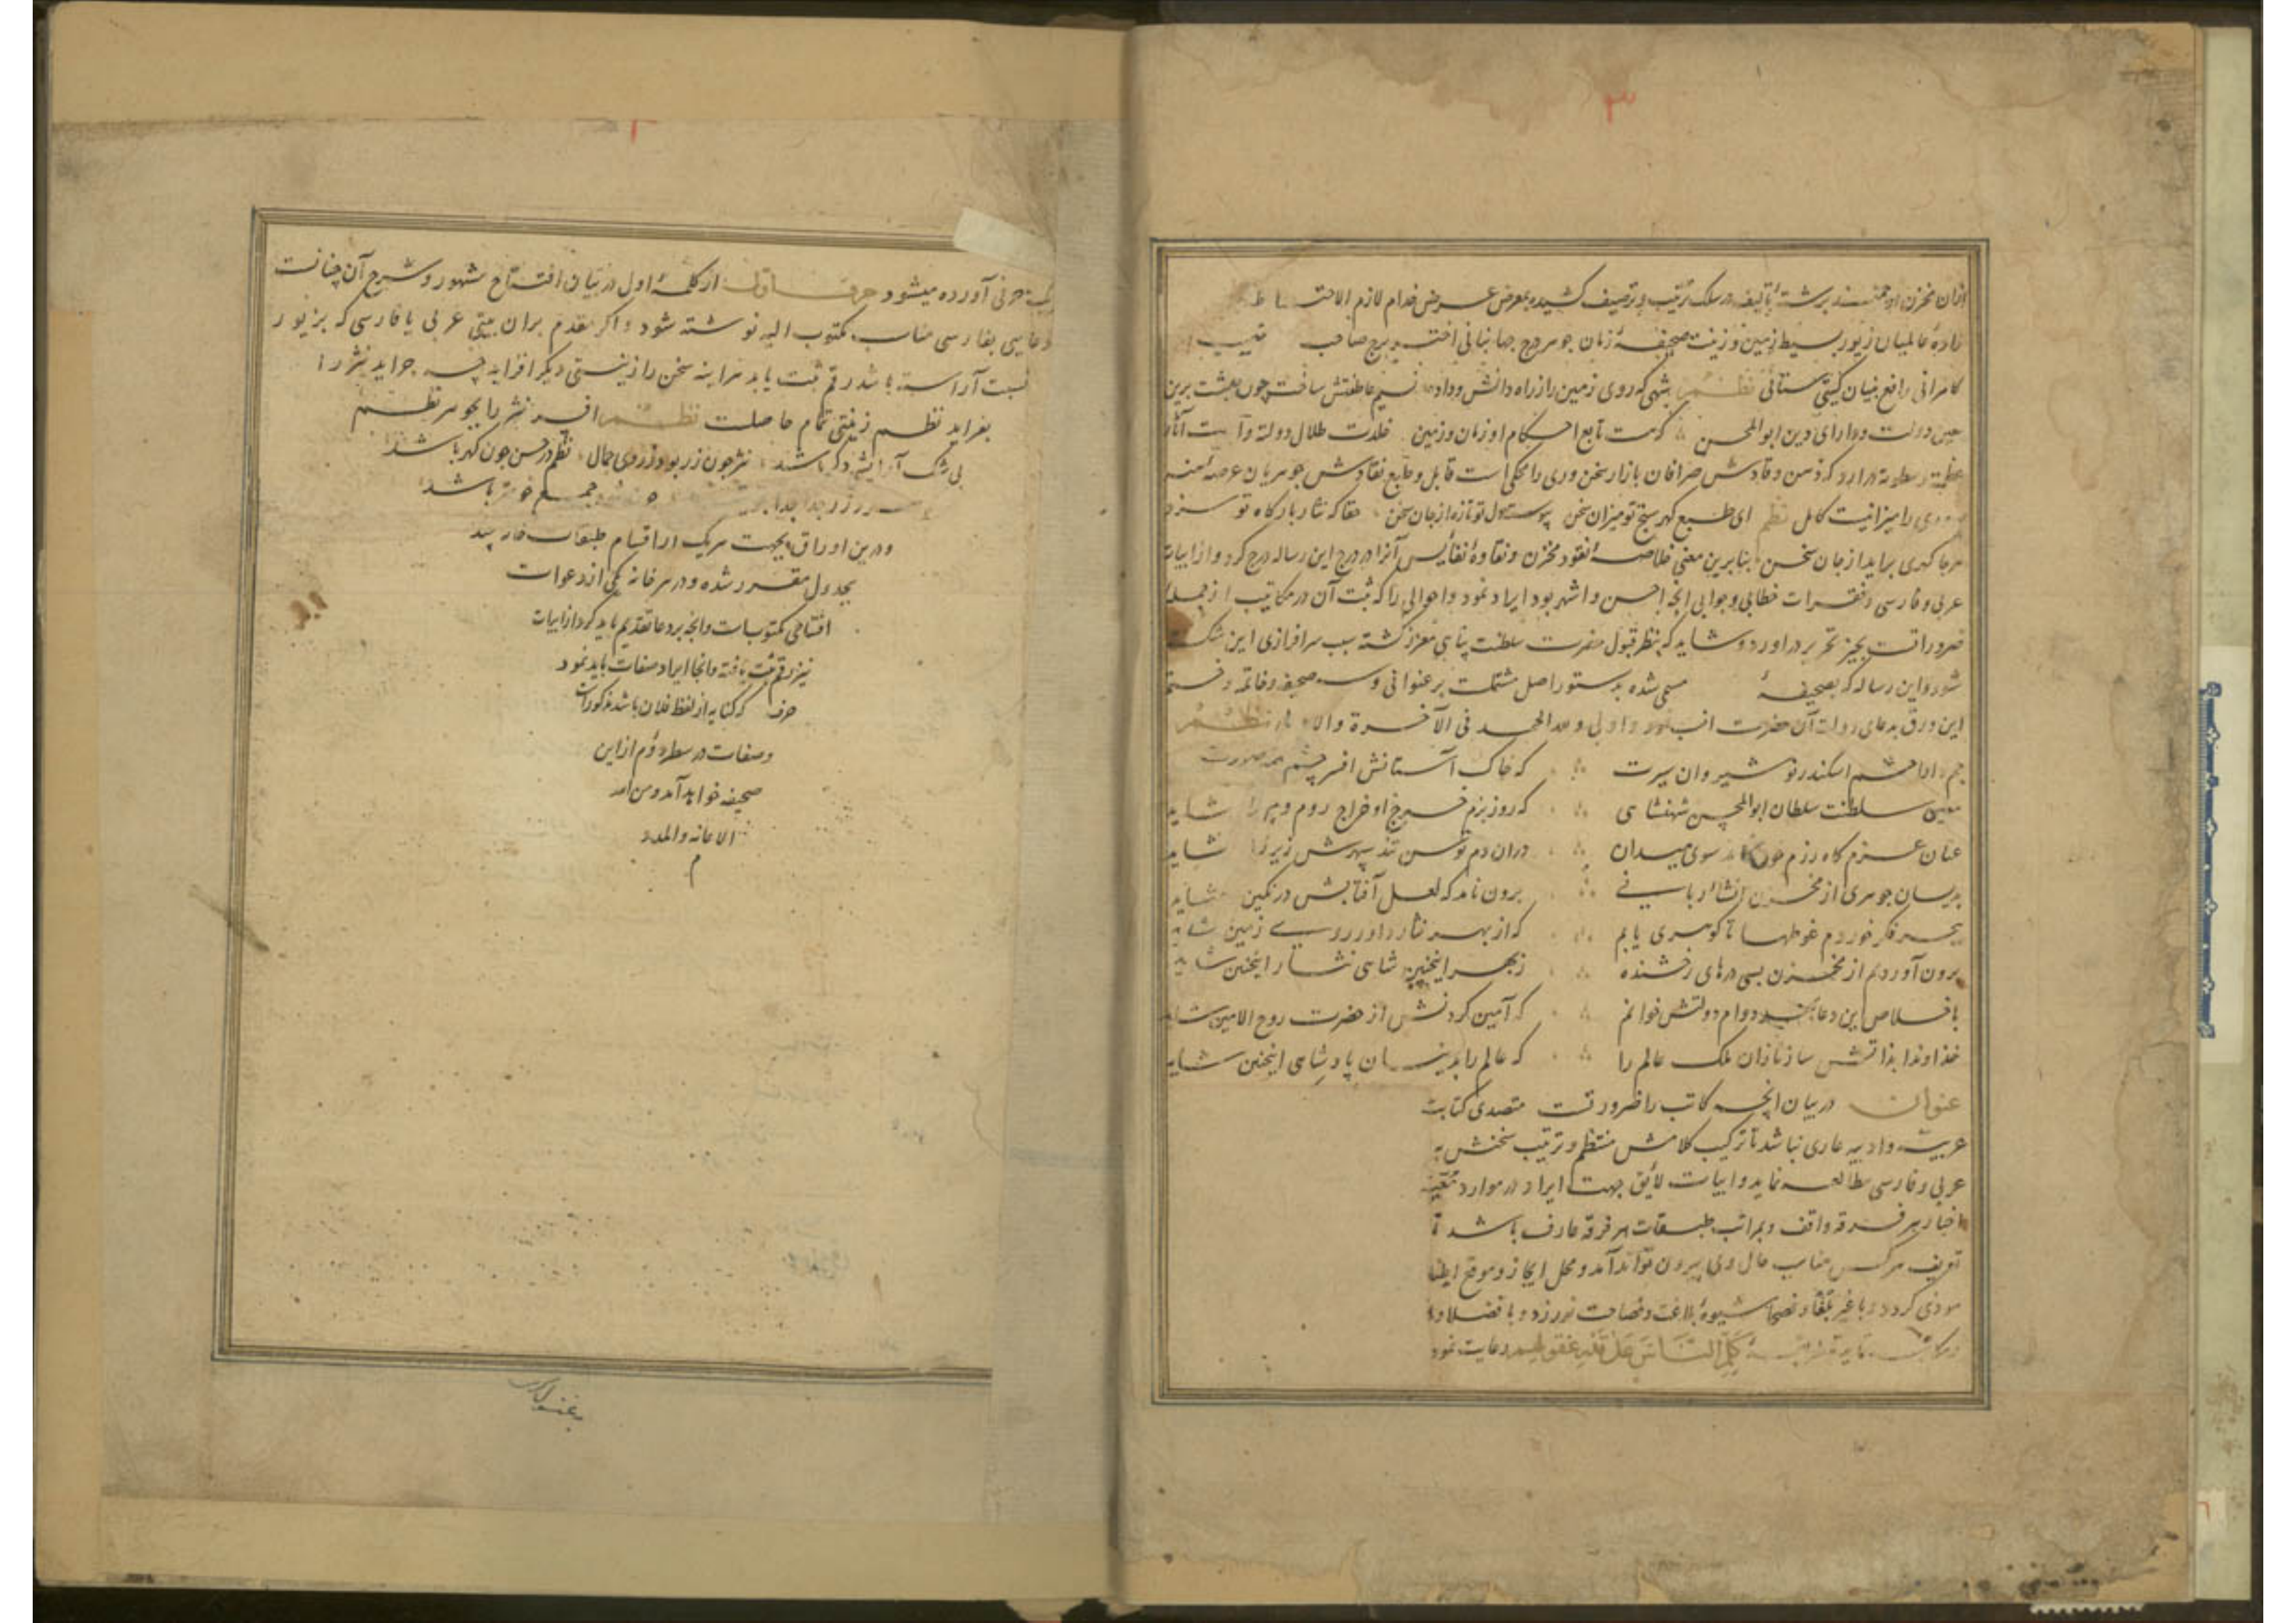 ۳
ازان مخزن ارجمند برشتهٔ تألیف در سلک ترتیب و ترصیف کشیده بمعرض عرض خدام لازم الاحتشام
زادهٔ عالمیان زیور بسیط زمین و زینت صحیفهٔ زمان جوهر درج جهانبانی اختر برج صاحب
کامرانی رافع بنیان گیتی ستانی نظم شهی که روی زمین را ز راه دانش و داد نسیم عاطفتش ساخت چون بهشت برین
معین دولت و دارای دین ابوالمحسن که هست تابع احکام او زمان و زمین خلدت ظلال دولته و
صرافان بازار سخن وری را محکی است قابل و طبع نقادش جوهریان عرصهٔ
را میزانیست کامل نظم ای طبع گهر سنج تو میزان سخن پیوسته دل تو تازه از جان سخن حقا که نثار بارگاه تو سزد
هرجا گهری براید از جان سخن بنابرین معنی خلاصهٔ نقود مخزن و نقاوهٔ نفایس آنرا در درج این رساله درج کرد و از ابیات
عربی و فارسی و فقرات خطابی و جوابی انچه احسن و اشهر بود ایراد نمود و احوالی را که ثبت آن در مکاتیب از جمله
ضروراتست بحیز تحریر دراورد و شاید که بنظر قبول حضرت سلطنت پناهی معزز گشته سبب سرافرازی این شکسته
شود و این رساله که بصحیفهٔ مسمی شده بدستور اصل مشتملست بر عنوانی و سه صحیفه و خاتمه و ختم
این ورق بدعای دولت آن حضرت انسب و اولی و لله الحمد فی الآخرة والاولی نظم
جم اسکندر نوشیروان سیرت که خاک آستانش افسر چشم
معین سلطنت سلطان ابوالمحسن شهنشاهی که روز بزم خرج او خراج روم و شاید
عنان عزم گاه رزم چون سوی میدان دران دم توسن تند سپهرش زیر شاید
بدیسان جوهری از مخزن انشا برون نامد که لعل آفتابش در نگین شاید
ببحر فکر خوردم غوطها تا گوهری یابم که از بهر نثار داور روی زمین شاید
برون آوردم از مخزن بسی درهای رخشنده ز بهر اینچنین شاهی نثار اینچنین شاید
باخلاص این دعا بهر دوام دولتش خوانم که آمین کردنش از حضرت روح الامین شاید
خداوندا بذاتش ساز نازان ملک عالم را که عالم را بدینسان پادشاهی اینچنین شاید
عنوان در بیان انچه کاتب را ضرورتست متصدی کتابت
عربیت و ادبیه عاری نباشد تا ترکیب کلامش منتظم و ترتیب سخنش
عربی و فارسی مطالعه نماید و ابیات لایق جهت ایراد در موارد
اخبار هر فرقه واقف و بمراتب طبقات هر فرقه عارف باشد تا
تعریف هرکس مناسب حال وی بیرون تواند آمد و محل ایجاز و موقع
مودی گردد و با غیر بلغا و فصحا شیوهٔ بلاغت و فصاحت نورزد و با فضلا و
کلم الناس علی قدر عقولهم رعایت نمود
حرفی آورده میشود حرف اول از کلمهٔ اول در بیان افتتاح مشهور و شرح آن چنانست
دعایی بفارسی مناسب مکتوب الیه نوشته شود و اگر مقدم بران بیتی عربی یا فارسی که بزیور
نسبت آراسته باشد رقم ثبت یابد هراینه سخن را زینتی دیگر افزاید چه جراید نثر را
بفراید نظم زینتی تمام حاصلست نظم افسر نثر را بجوهر نظم
بی شک آرایشی دگر باشد نثر چون زر بود ز روی جمال نظم در حسن چون گهر باشد
جدا جدا جمع خوبتر باشد
و درین اوراق بجهت هریک از اقسام طبقات خانه چند
بجدول مقرر شده و در هر خانه یکی از دعوات
افتتاحی مکتوبات و انچه بر دعا تقدیم باید کرد از ابیات
نیز رقم ثبت یافته و انجا ایراد صفات باید نمود
حرف که کنایه از لفظ فلان باشد مذکور است
و صفات در سطر دوم از این
صحیفه خواهد آمد و من الله
الاعانه والمدد
م